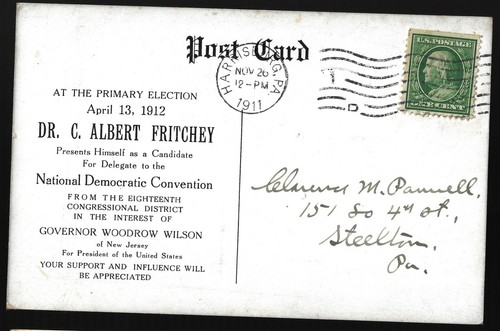 Post Card
HARRISBURG, PA.
NOV 26
12-PM
1911
D
U.S. POSTAGE
ONE CENT
AT THE PRIMARY ELECTION
April 13, 1912
DR. C. ALBERT FRITCHEY
Presents Himself as a Candidate
For Delegate to the
National Democratic Convention
FROM THE EIGHTEENTH
CONGRESSIONAL DISTRICT
IN THE INTEREST OF
GOVERNOR WOODROW WILSON
of New Jersey
For President of the United States
YOUR SUPPORT AND INFLUENCE WILL
BE APPRECIATED
Clarence M. Pannell.
151 So 4th st.,
Steelton,
Pa.